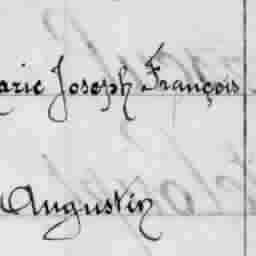 arie Joseph François
Augustin